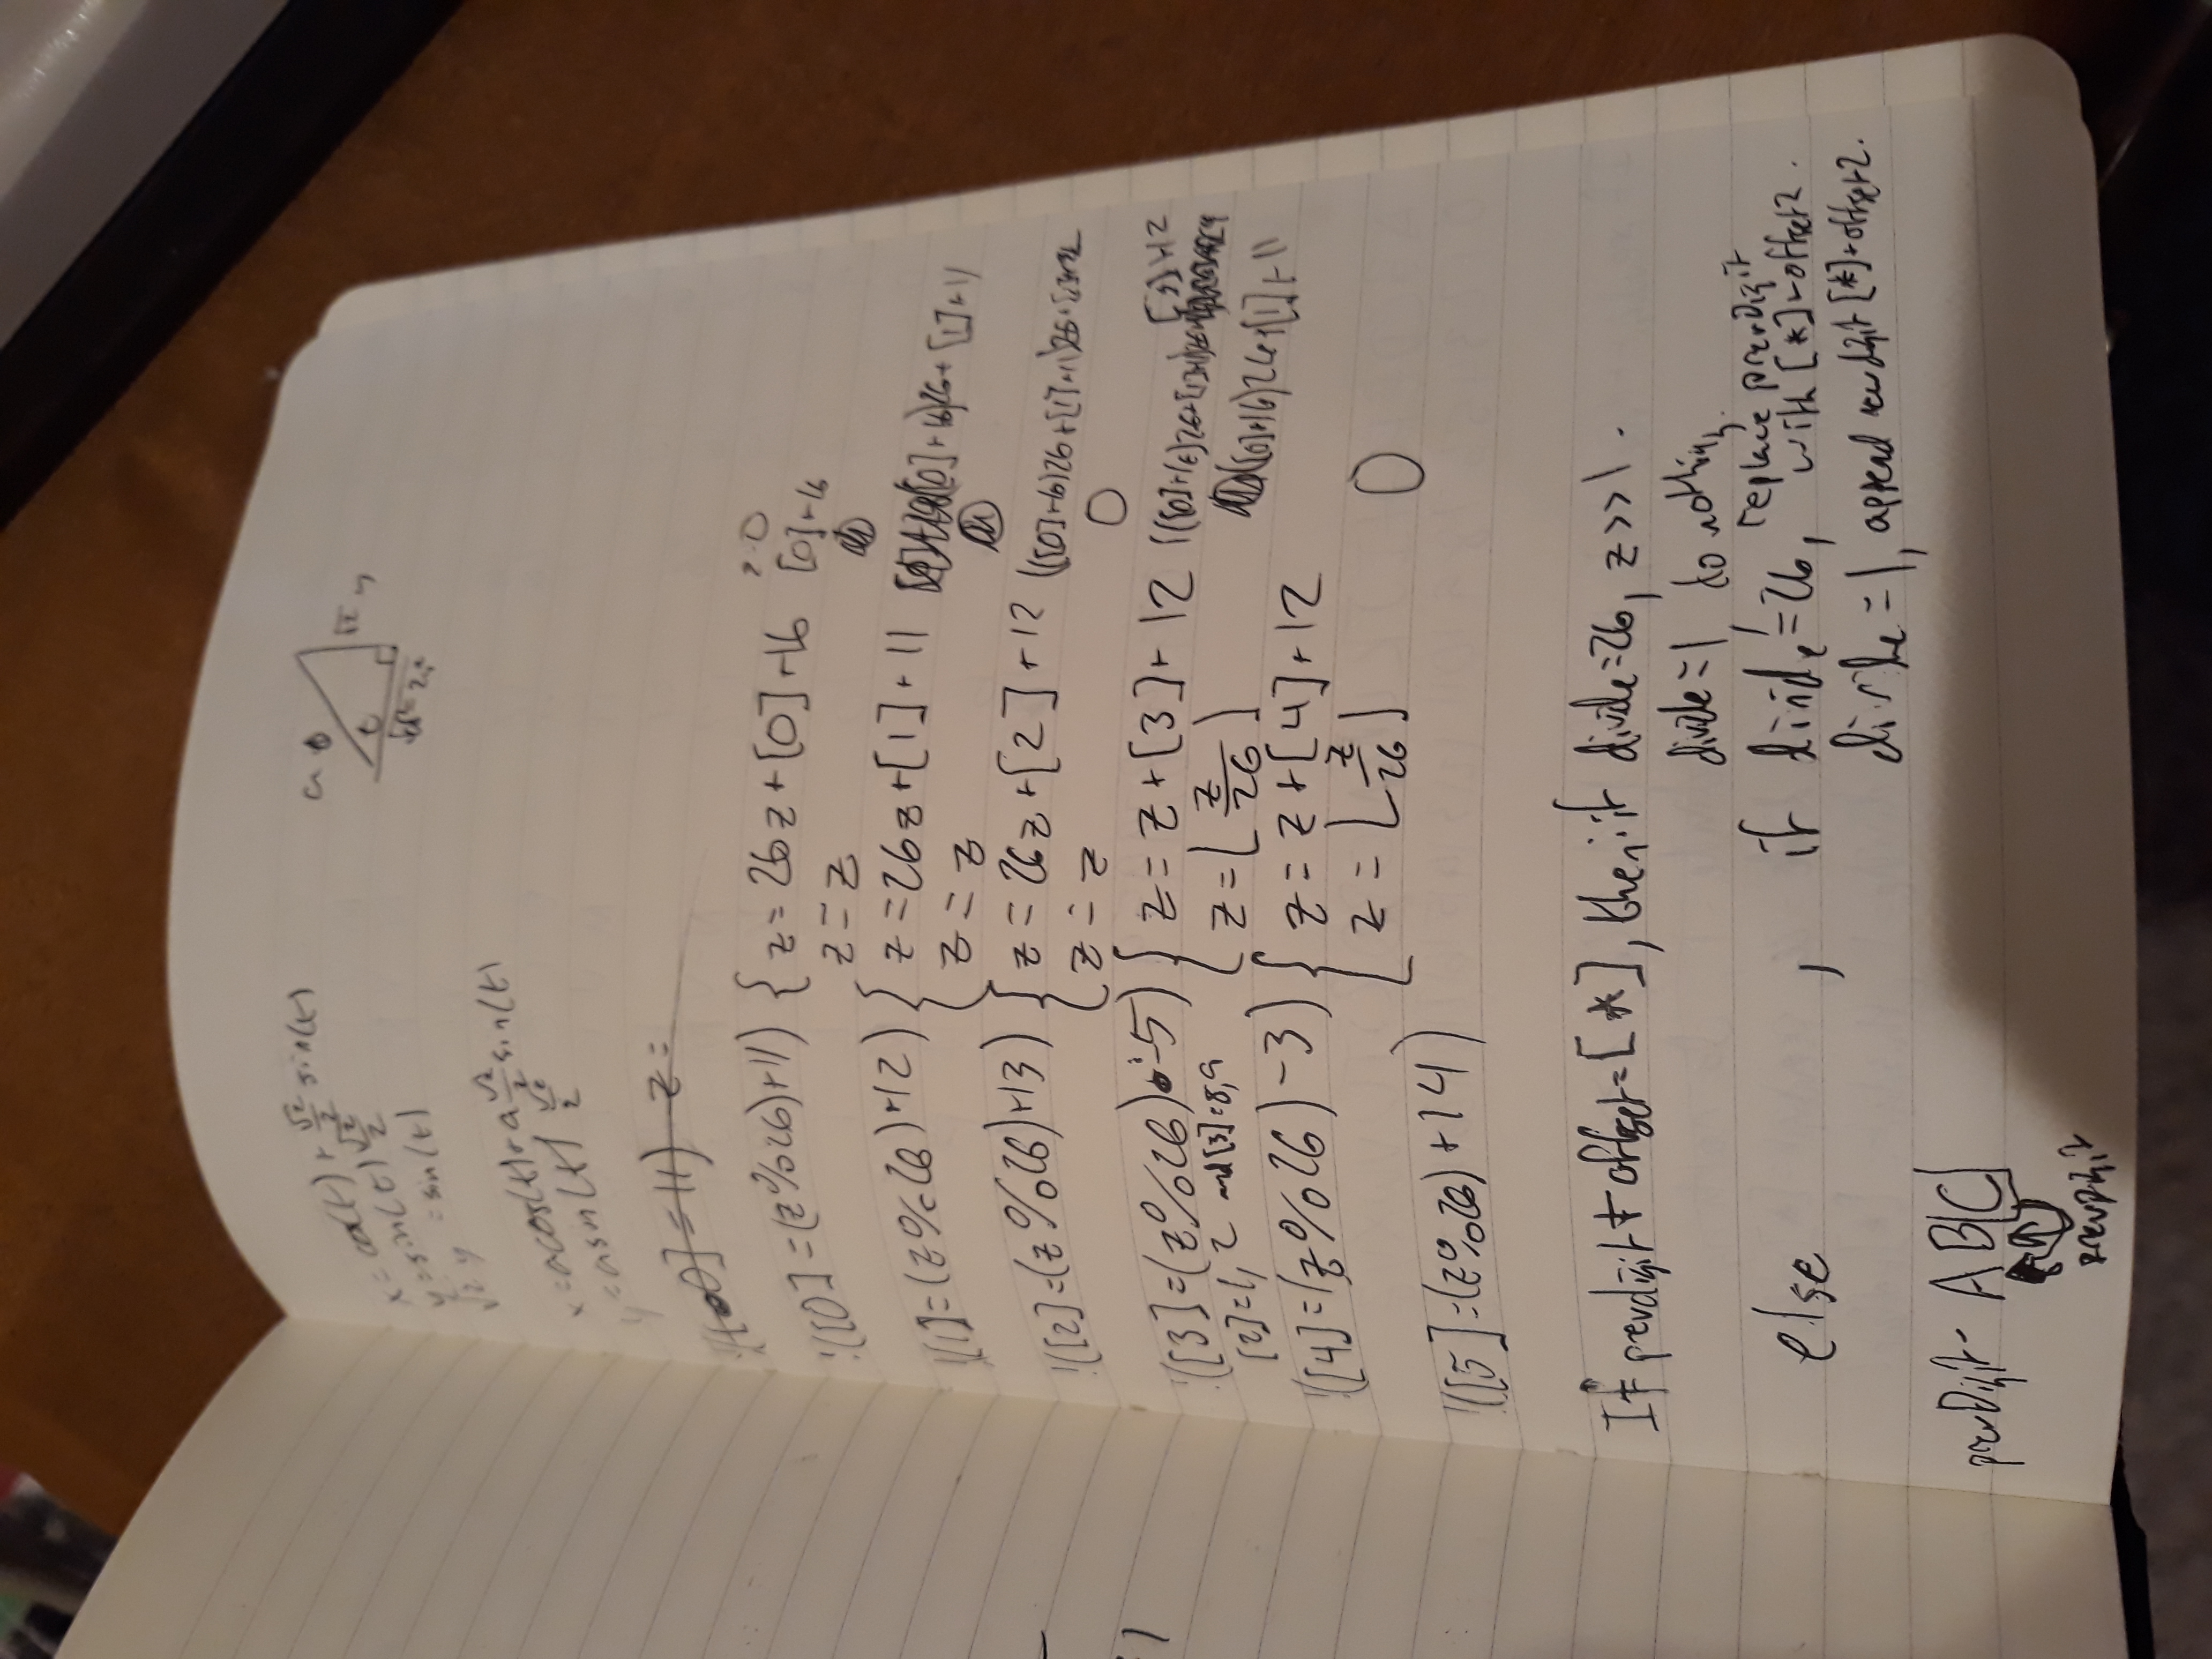 x = cos(t) + √2/2 sin(t)
y = sin(t) √2/2
√2 y = sin(t)
a
t
√2 y
x = a cos(t) + a √2/2 sin(t)
y = a sin(t) √2/2
0] = 11) z =
!([0] = (z%26)+11) { z = 26z + [0] + 16
z = z
[0]+16
!([1] = (z%26)+12) { z = 26z + [1] + 11
z = z
[0]+16)26 + [1]+11
!([2] = (z%26)+13) { z = 26z + [2] + 12
z = z
(([0]+16)26+[1]+11)26+[2]+12
0
!([3] = (z%26) -5) { z = z + [3] + 12
[2]=1,2 and [3]=8,9
z = ⌊z/26⌋
[3]+12
([0]+16)26+[1]+11
!([4] = (z%26) -3) { z = z + [4] + 12
z = ⌊z/26⌋
0
!([5] = (z%26) + 14)
If prevdigit + offset = [*], then: if divide=26, z>>1.
divide=1, do nothing.
else , if divide=26, replace prevDigit with [*]+offset2.
divide=1, append new digit [*]+offset2.
prevDigit- A B C
prevDigit